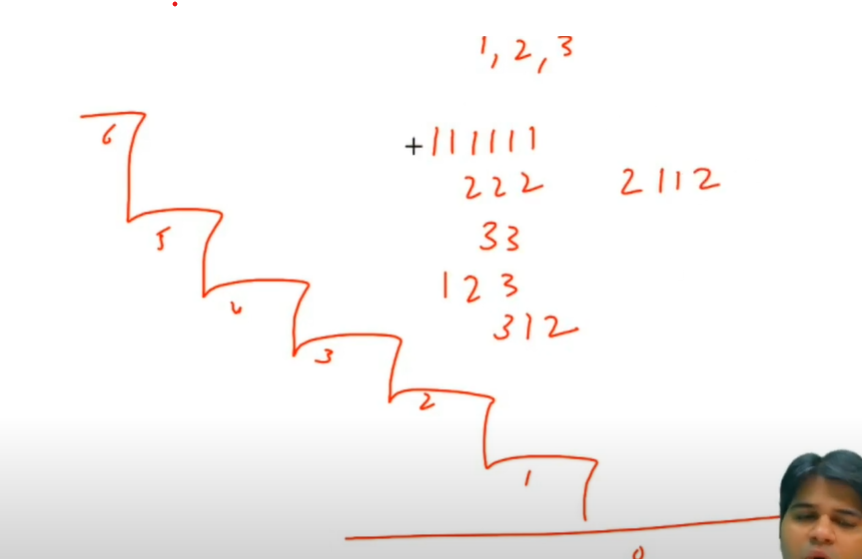 1, 2, 3
+111111
222 2112
33
123
312
6
5
4
3
2
1
0